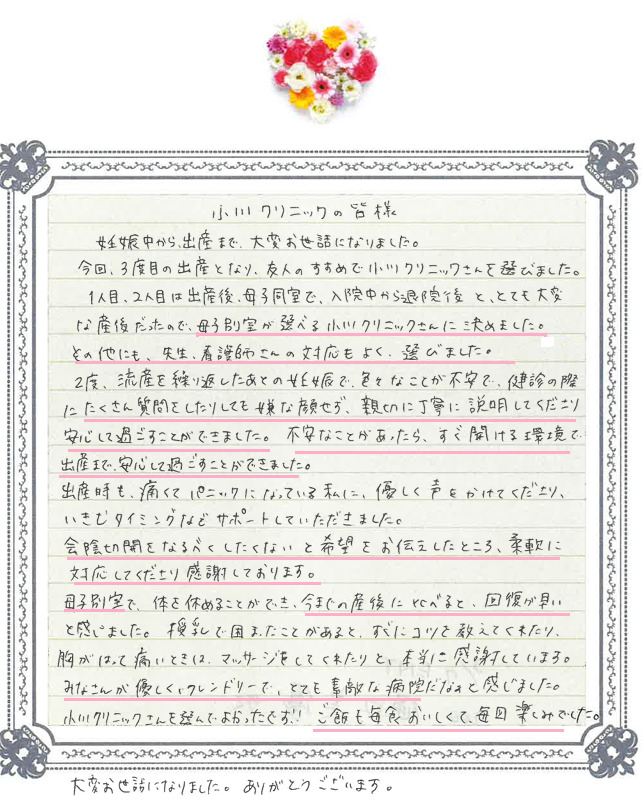 小川クリニックの皆様
妊娠中から、出産まで、大変お世話になりました。
今回、3度目の出産となり、友人のすすめで小川クリニックさんを選びました。
1人目、2人目は出産後、母子同室で、入院中から退院後と、とても大変
な産後だったので、母子別室が選べる小川クリニックさんに決めました。
その他にも、先生、看護師さんの対応もよく、選びました。
2度、流産を繰り返したあとの妊娠で、色々なことが不安で、健診の際
にたくさん質問をしたりしても嫌な顔せず、親切に丁寧に説明してくださり
安心して過ごすことができました。不安なことがあったら、すぐ聞ける環境で
出産まで、安心して過ごすことができました。
出産時も、痛くてパニックになっている私に、優しく声をかけてくださり、
いきむタイミングなどサポートしていただきました。
会陰切開をなるべくしたくないと希望をお伝えしたところ、柔軟に
対応してくださり感謝しております。
母子別室で、体を休めることができ、今までの産後に比べると、回復が早い
と感じました。授乳で困ったことがあると、すぐにコツを教えてくれたり、
胸がはって痛いときは、マッサージをしてくれたりと、本当に感謝しています。
みなさんが優しくフレンドリーで、とても素敵な病院だなぁと感じました。
小川クリニックさんを選んでよかったです!!ご飯も毎食おいしくて、毎回楽しみでした。
大変お世話になりました。ありがとうございます。